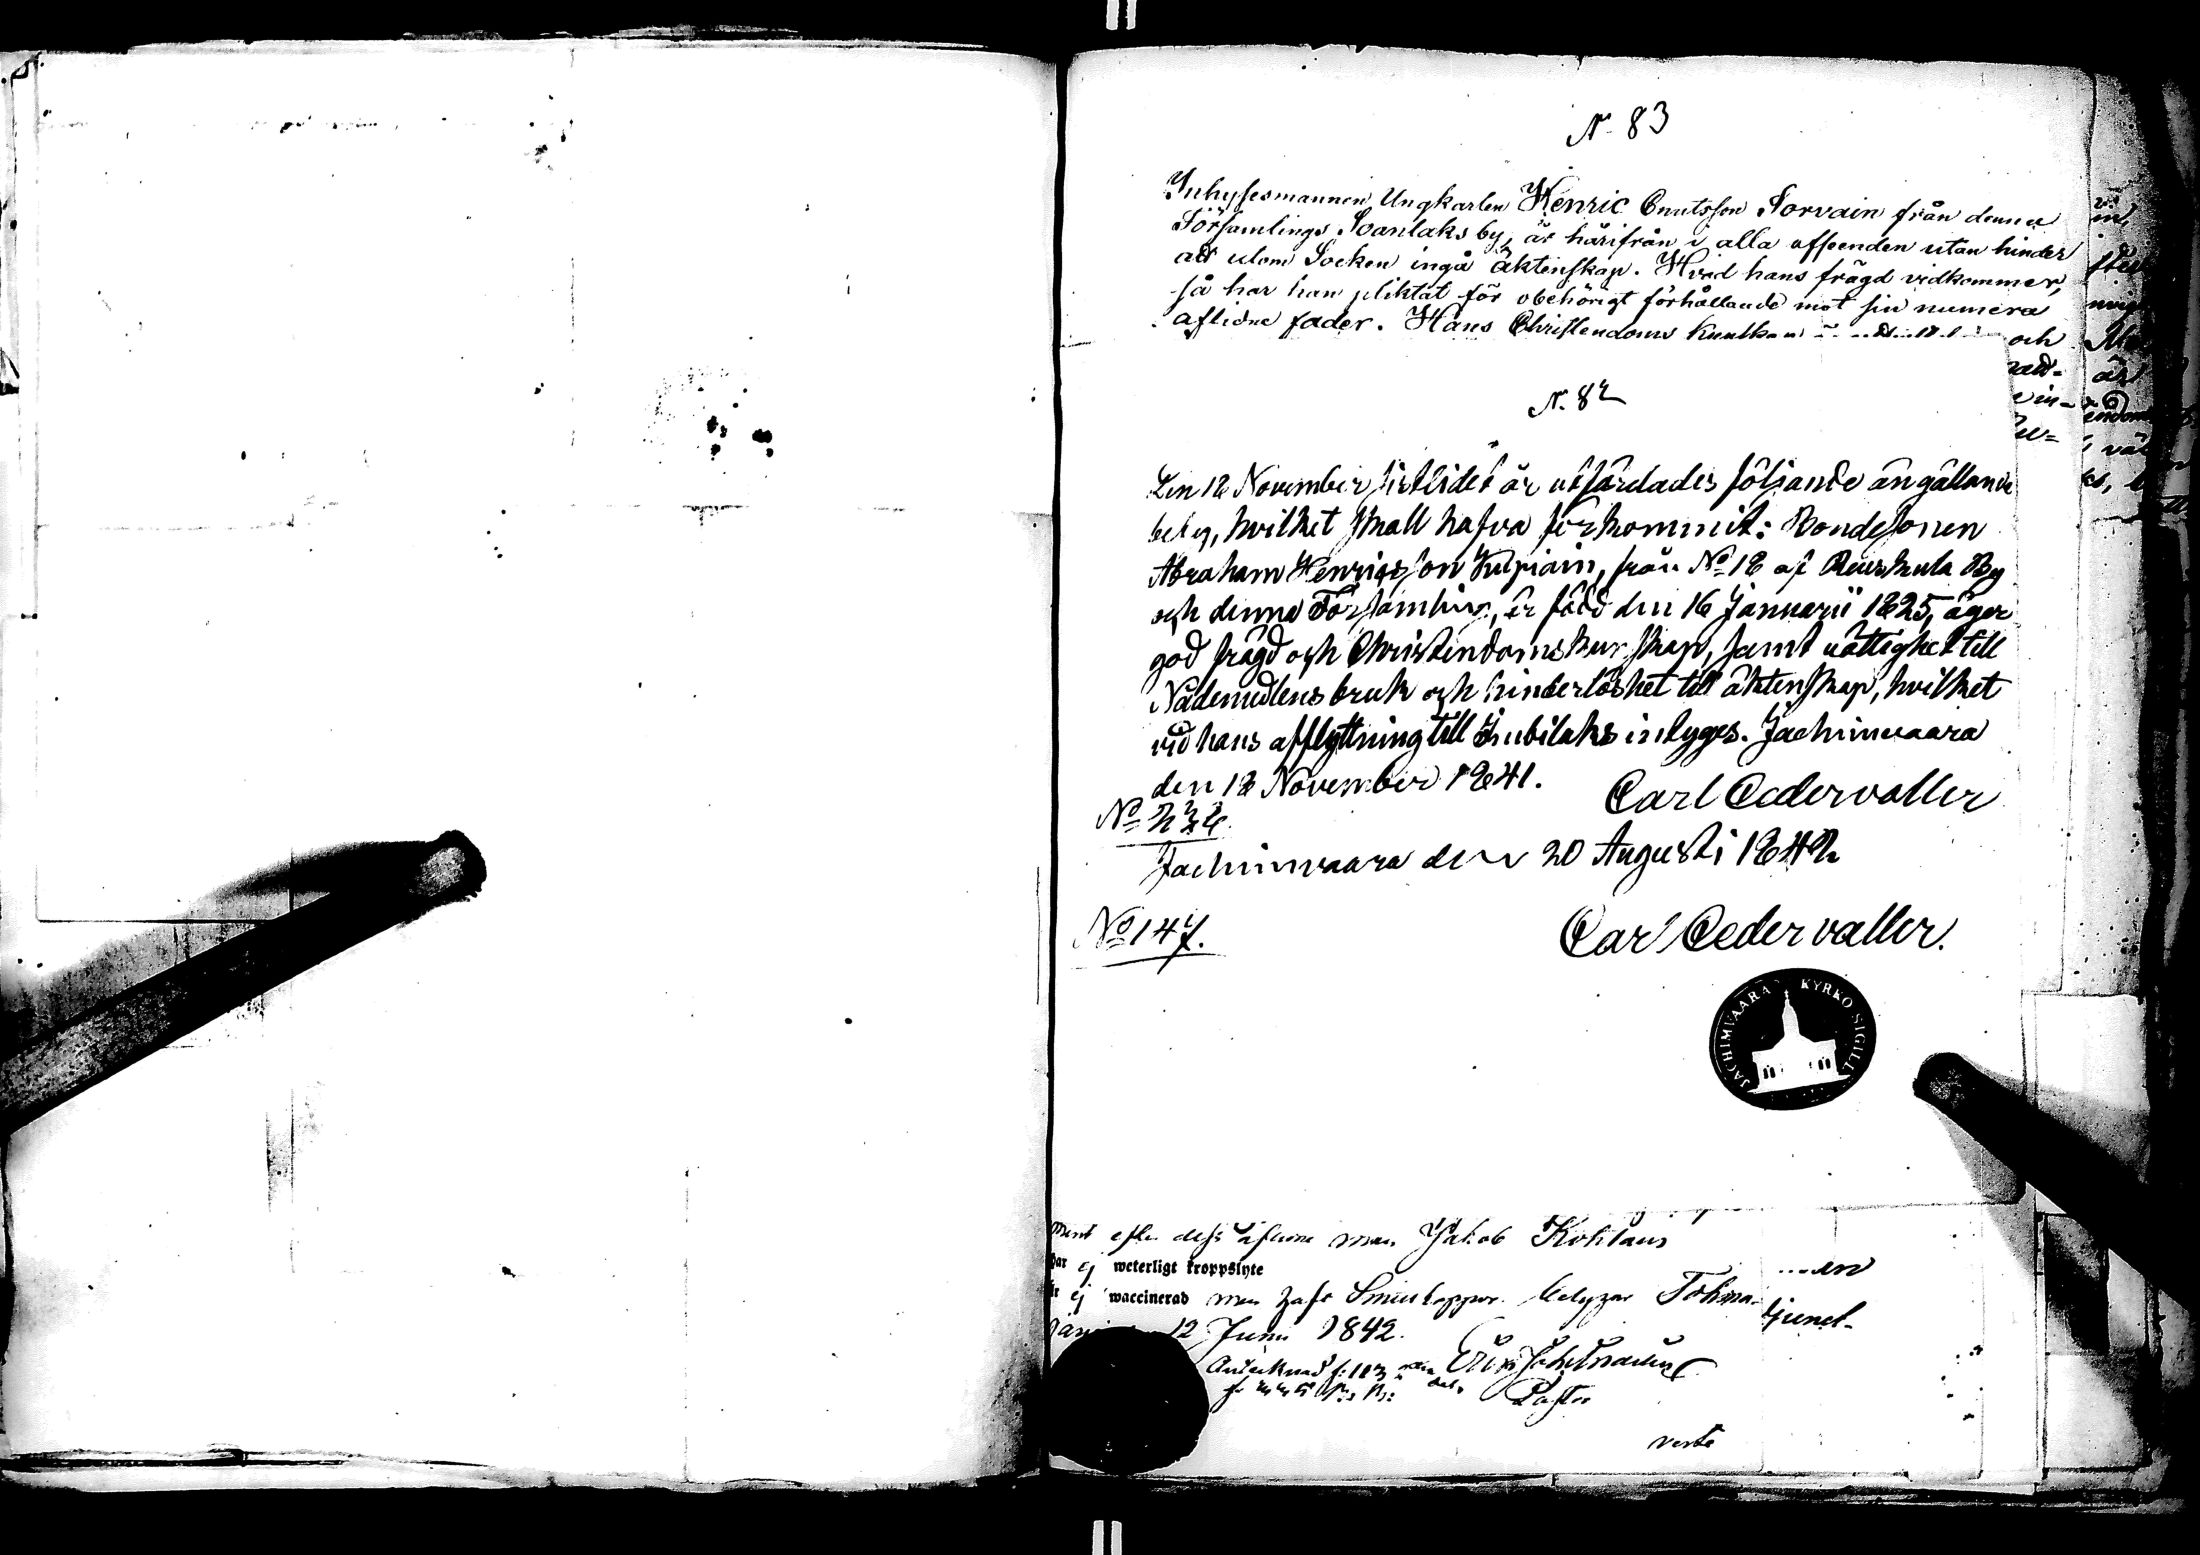 N. 83
Inhysesmannen Ungkarlen Henric Cnutsson Torvain från denna
Församlings Ivanlaks by, är härifrån i alla afseenden utan hinder
att utom Socken ingå äktenskap. Hvad hans frägd vedkommer,
så har han pliktat för obehörigt förhållande mot sin numera
aflidne fader. Hans Christendoms Kunskap
och
N. 82
Den 18 November sistlidet år utfärdades följande angällande
betyg, hvilket skall hafva förkommit: Bondesonen
Abraham Henricsson Kulpiain, från No 18 af Reuskula By
och denna Församling, är född den 16 Januarii 1825, äger
god frägd och Christendomskunskap, samt rättighet till
Nådemedlens bruk och hinderlöshet till äktenskap, hvilket
vid hans afflyttning till Imbilaks intyges. Jachimvaara
den 18 November 1841. Carl Cedervaller
No 238.
Jachimvaara den 20 Augusti 1842
No 147. Carl Cedervaller.
JACHIMVAARA KYRKO SIGILL
efter dess aflidne man Jakob Kohlain
har ej weterligt kroppslyte
är ej waccinerad men haft Smittkoppor.
12 Junii 1842.
Antecknad
Pastor
verte